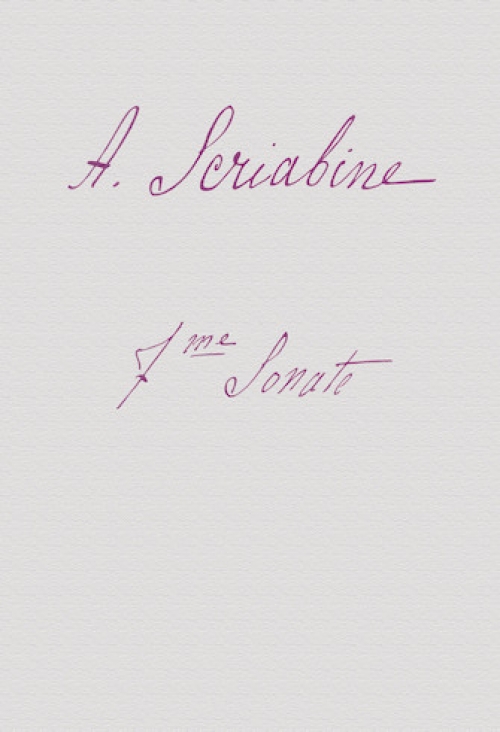 A. Scriabine
7me Sonate